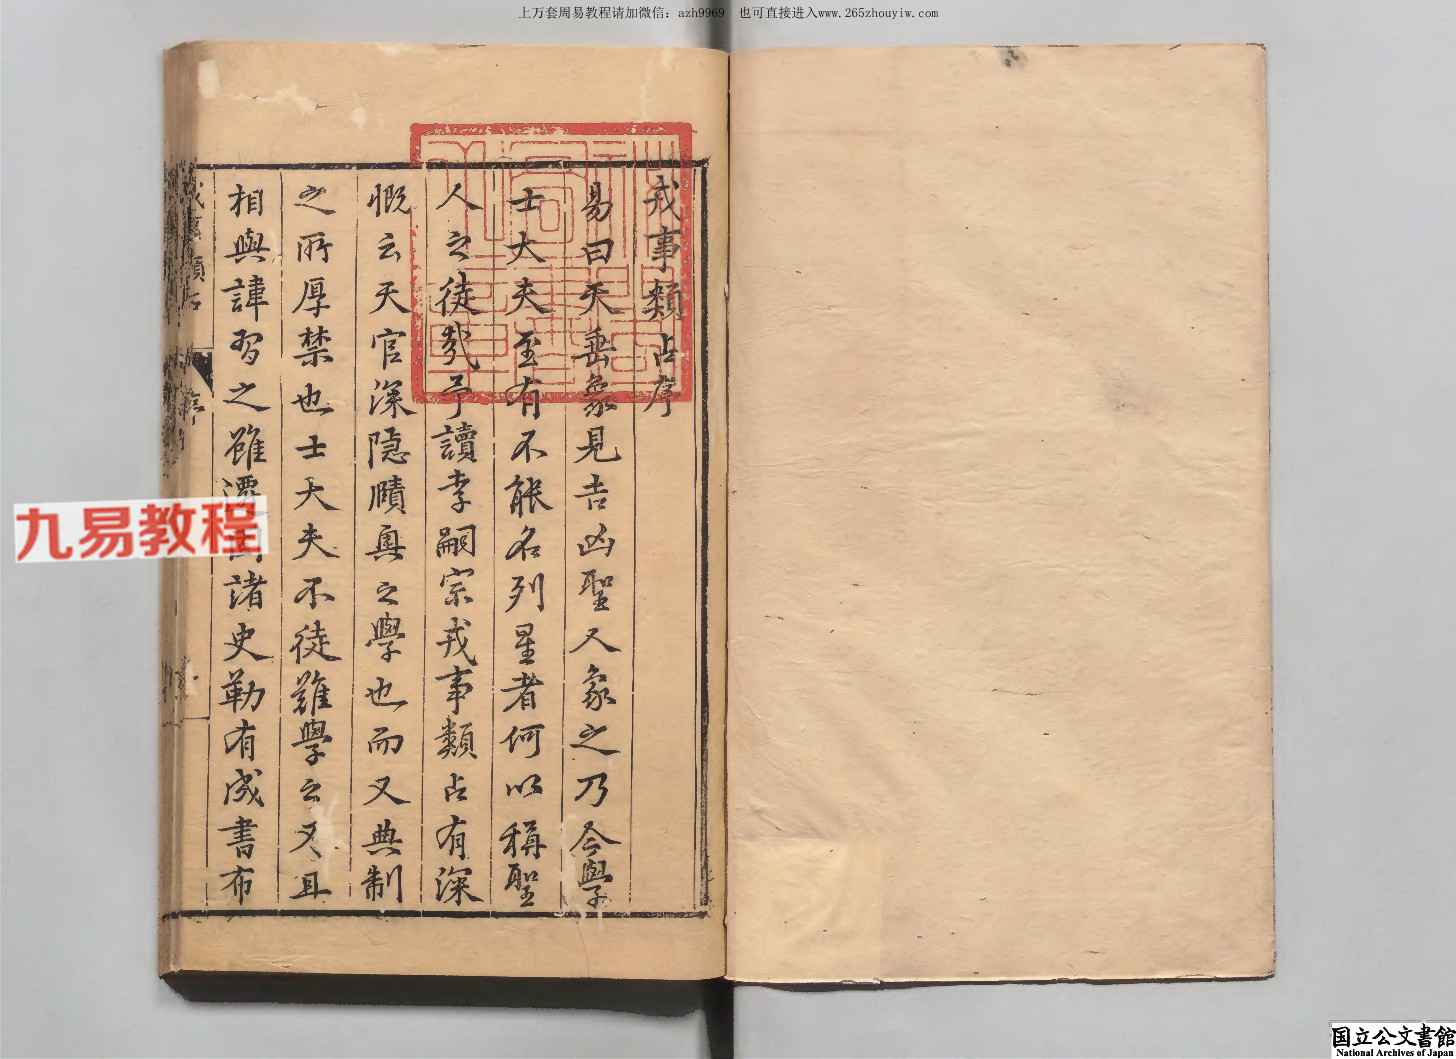 上万套周易教程请加微信：azh9969　也可直接进入www.265zhouyiw.com
戎事類占序
易曰天垂象見吉凶聖人象之乃今學
士大夫至有不能名列星者何以稱聖
人之徒哉予讀李嗣宗戎事類占有深
慨云天官深隱賾奧之學也而又典制
之所厚禁也士大夫不徒難學之又且
相與諱習之雖諸史勒有成書布
序
九易教程
国立公文書館
National Archives of Japan